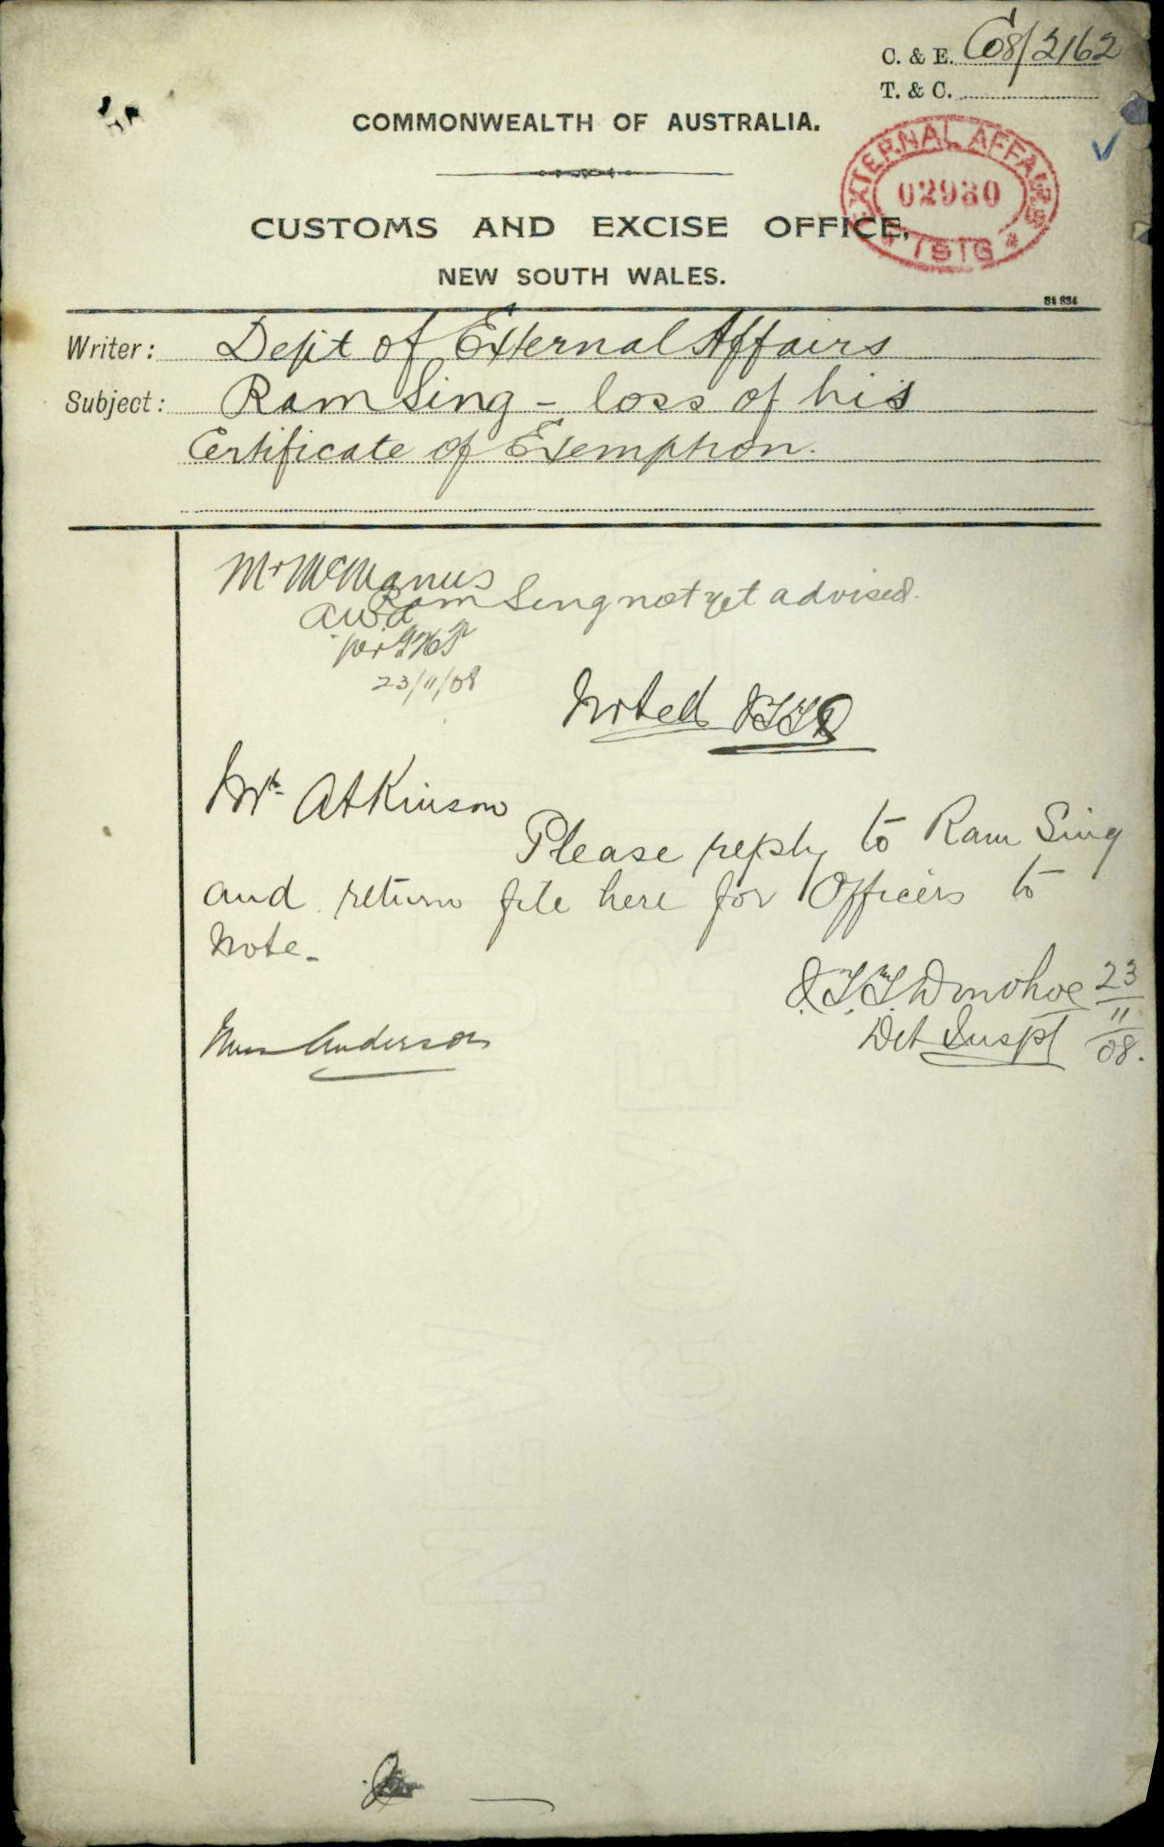 C. & E. C08/2162
T. & C.
COMMONWEALTH OF AUSTRALIA.
EXTERNAL AFFAIRS
02930
CUSTOMS AND EXCISE OFFICE,
NEW SOUTH WALES.
Writer: Dept of External Affairs
Subject: Ram Sing - loss of his
Certificate of Exemption.
Mr McManus
Ram Sing not yet advised.
AWA
per
23/11/08
Noted
Mr Atkinson
Please reply to Ram Sing
and return file here for Officers to
Note.
Donohoe 23/11/08.
Det Inspt
Anderson